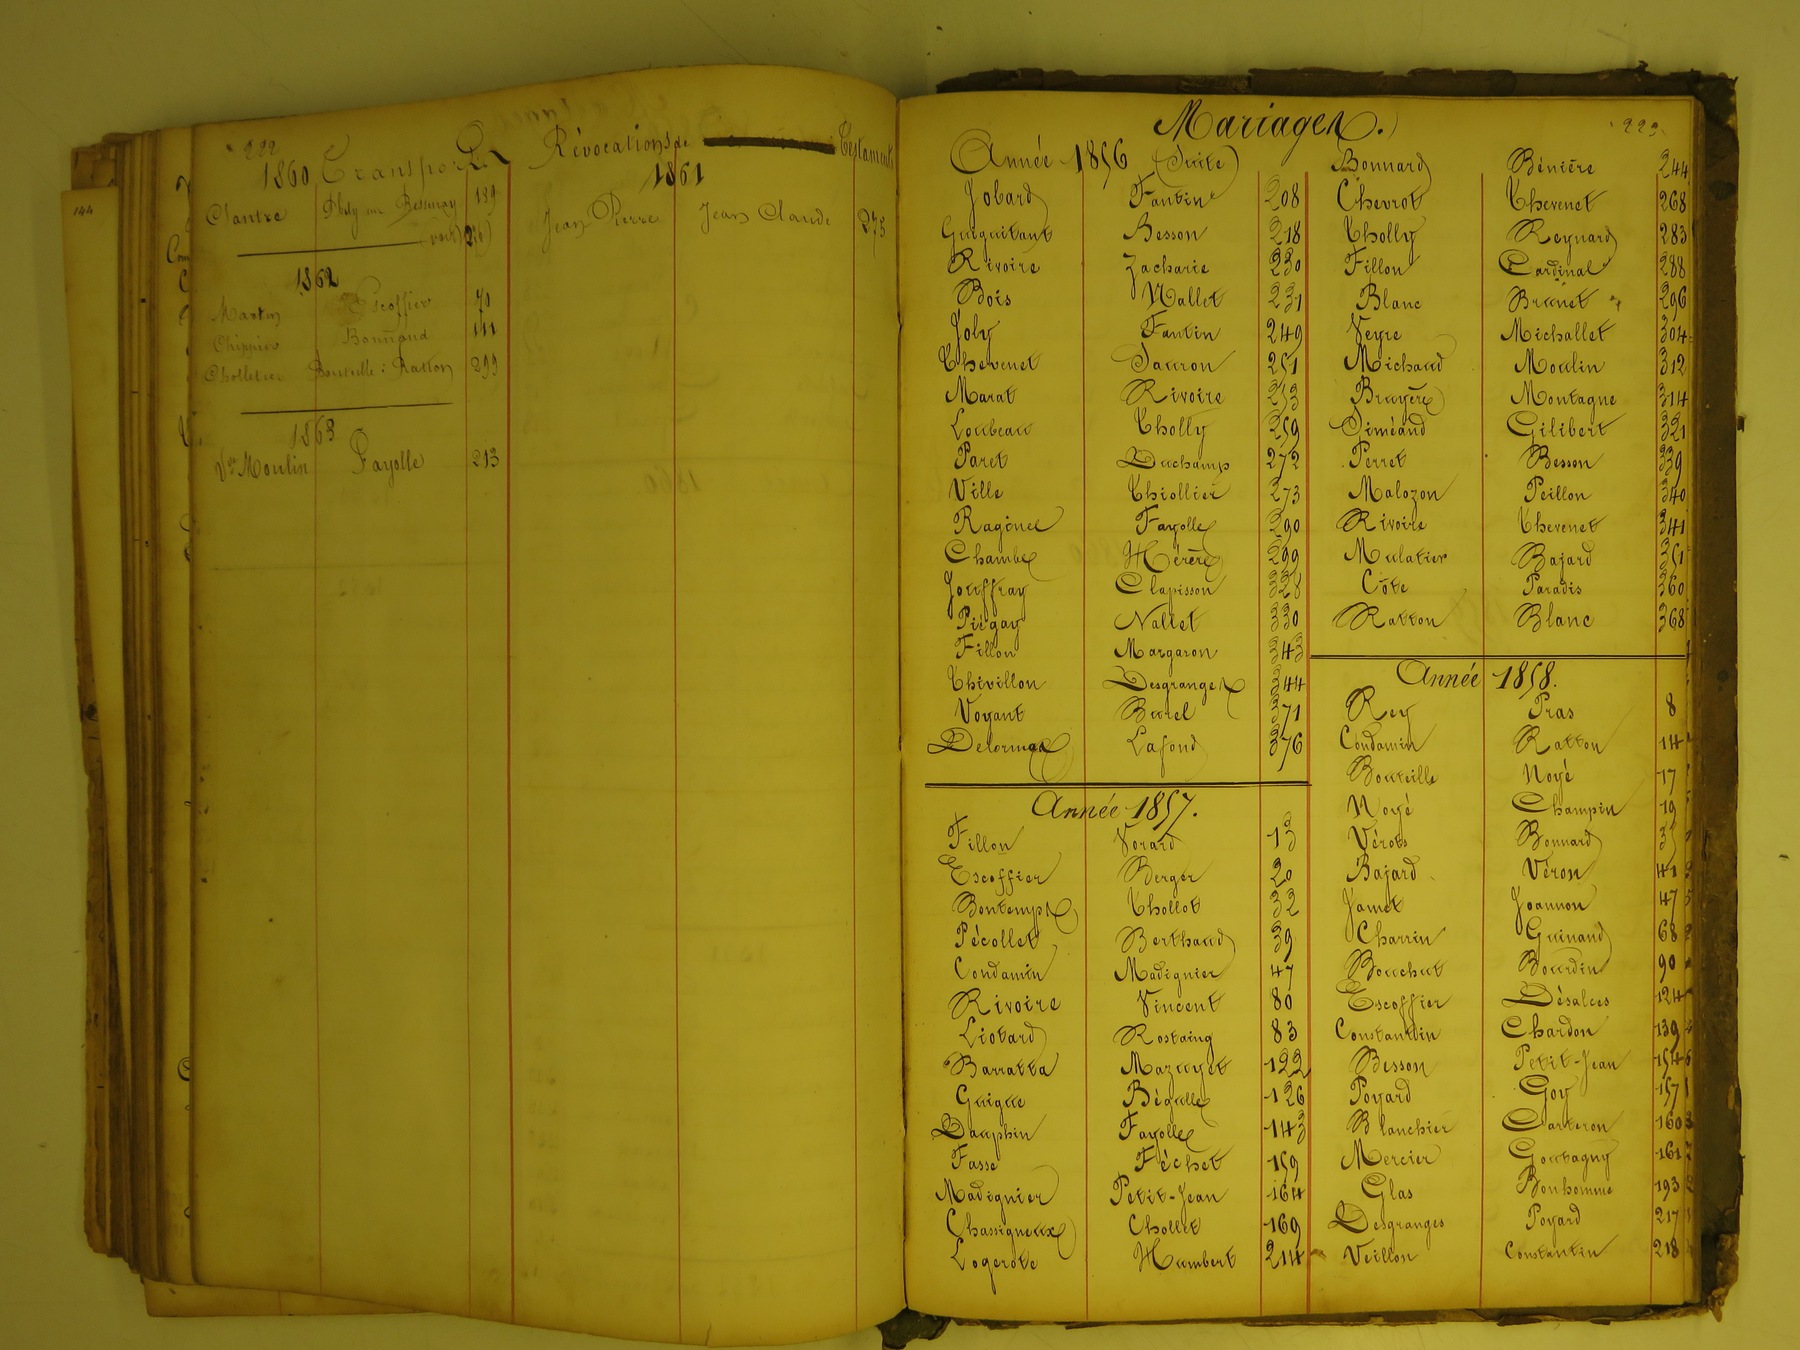 144
222
1860 Transports
Clantre
189
(voir) 216
1862
Martin Escoffier 70
Chippier Bonnand 141
Cholletier Bouteille : Ratton 299
1863
Vve Moulin Fayolle 213
Révocations de Testaments
1861
Jean Pierre Jean Claude 275
Mariages.
223
Année 1856 (Suite)
Jobard Fantin 208
Guiguitant Besson 218
Rivoire Zacharie 230
Bois Nallet 231
Joly Fantin 249
Thevenet Sauron 251
Marat Rivoire 253
Loubeau Tholly 259
Paret Duchamp 272
Ville Thiollier 273
Ragénel Fayolle 290
Chambe 299
Jouffray Clapisson 328
Piégay Nallet 330
Fillon Margaron 343
Thivillon Desgranges 344
Voyant Burel 371
Delorme Lafond 376
Année 1857.
Fillon Vorard 13
Escoffier Berger 20
Bontemps Thollot 32
Pécollet Berthaud 39
Condamin Madignier 47
Rivoire Vincent 80
Liotard Rostaing 83
Barratta Mazuyet 122
Guigue Bégulle 126
Dauphin Fayolle 143
Fasse Féchet 159
Madignier Petit-Jean 164
Chassigneux Chollet 169
Logerote Humbert 214
Bonnard Bénière 244
Chevrot Thevenet 268
Tholly Reynard 283
Fillon Cardinal 288
Blanc Brunet 296
Veyre Michallet 304
Michaud Moulin 312
Bruyère Montagne 314
Siméand Gilibert 321
Perret Besson 339
Malozon Peillon 340
Rivoire Thevenet 341
Mulatier Bajard 351
Côte Paradis 360
Ratton Blanc 368
Année 1858.
Rey Pras 8
Condamin Ratton 14
Bouteille Noyé 17
Noyé Champin 19
Vérots Bonnard 35
Bajard Véron 41
Jamet Joannon 47
Charrin Guinand 68
Bouchut Bourdin 90
Escoffier Désalces 124
Constantin Chardon 139
Besson Petit-Jean 154
Poyard Goy 157
Blanchier Carteron 160
Mercier Goutagny 161
Glas Bonhomme 193
Desgranges Poyard 217
Veillon Constantin 218